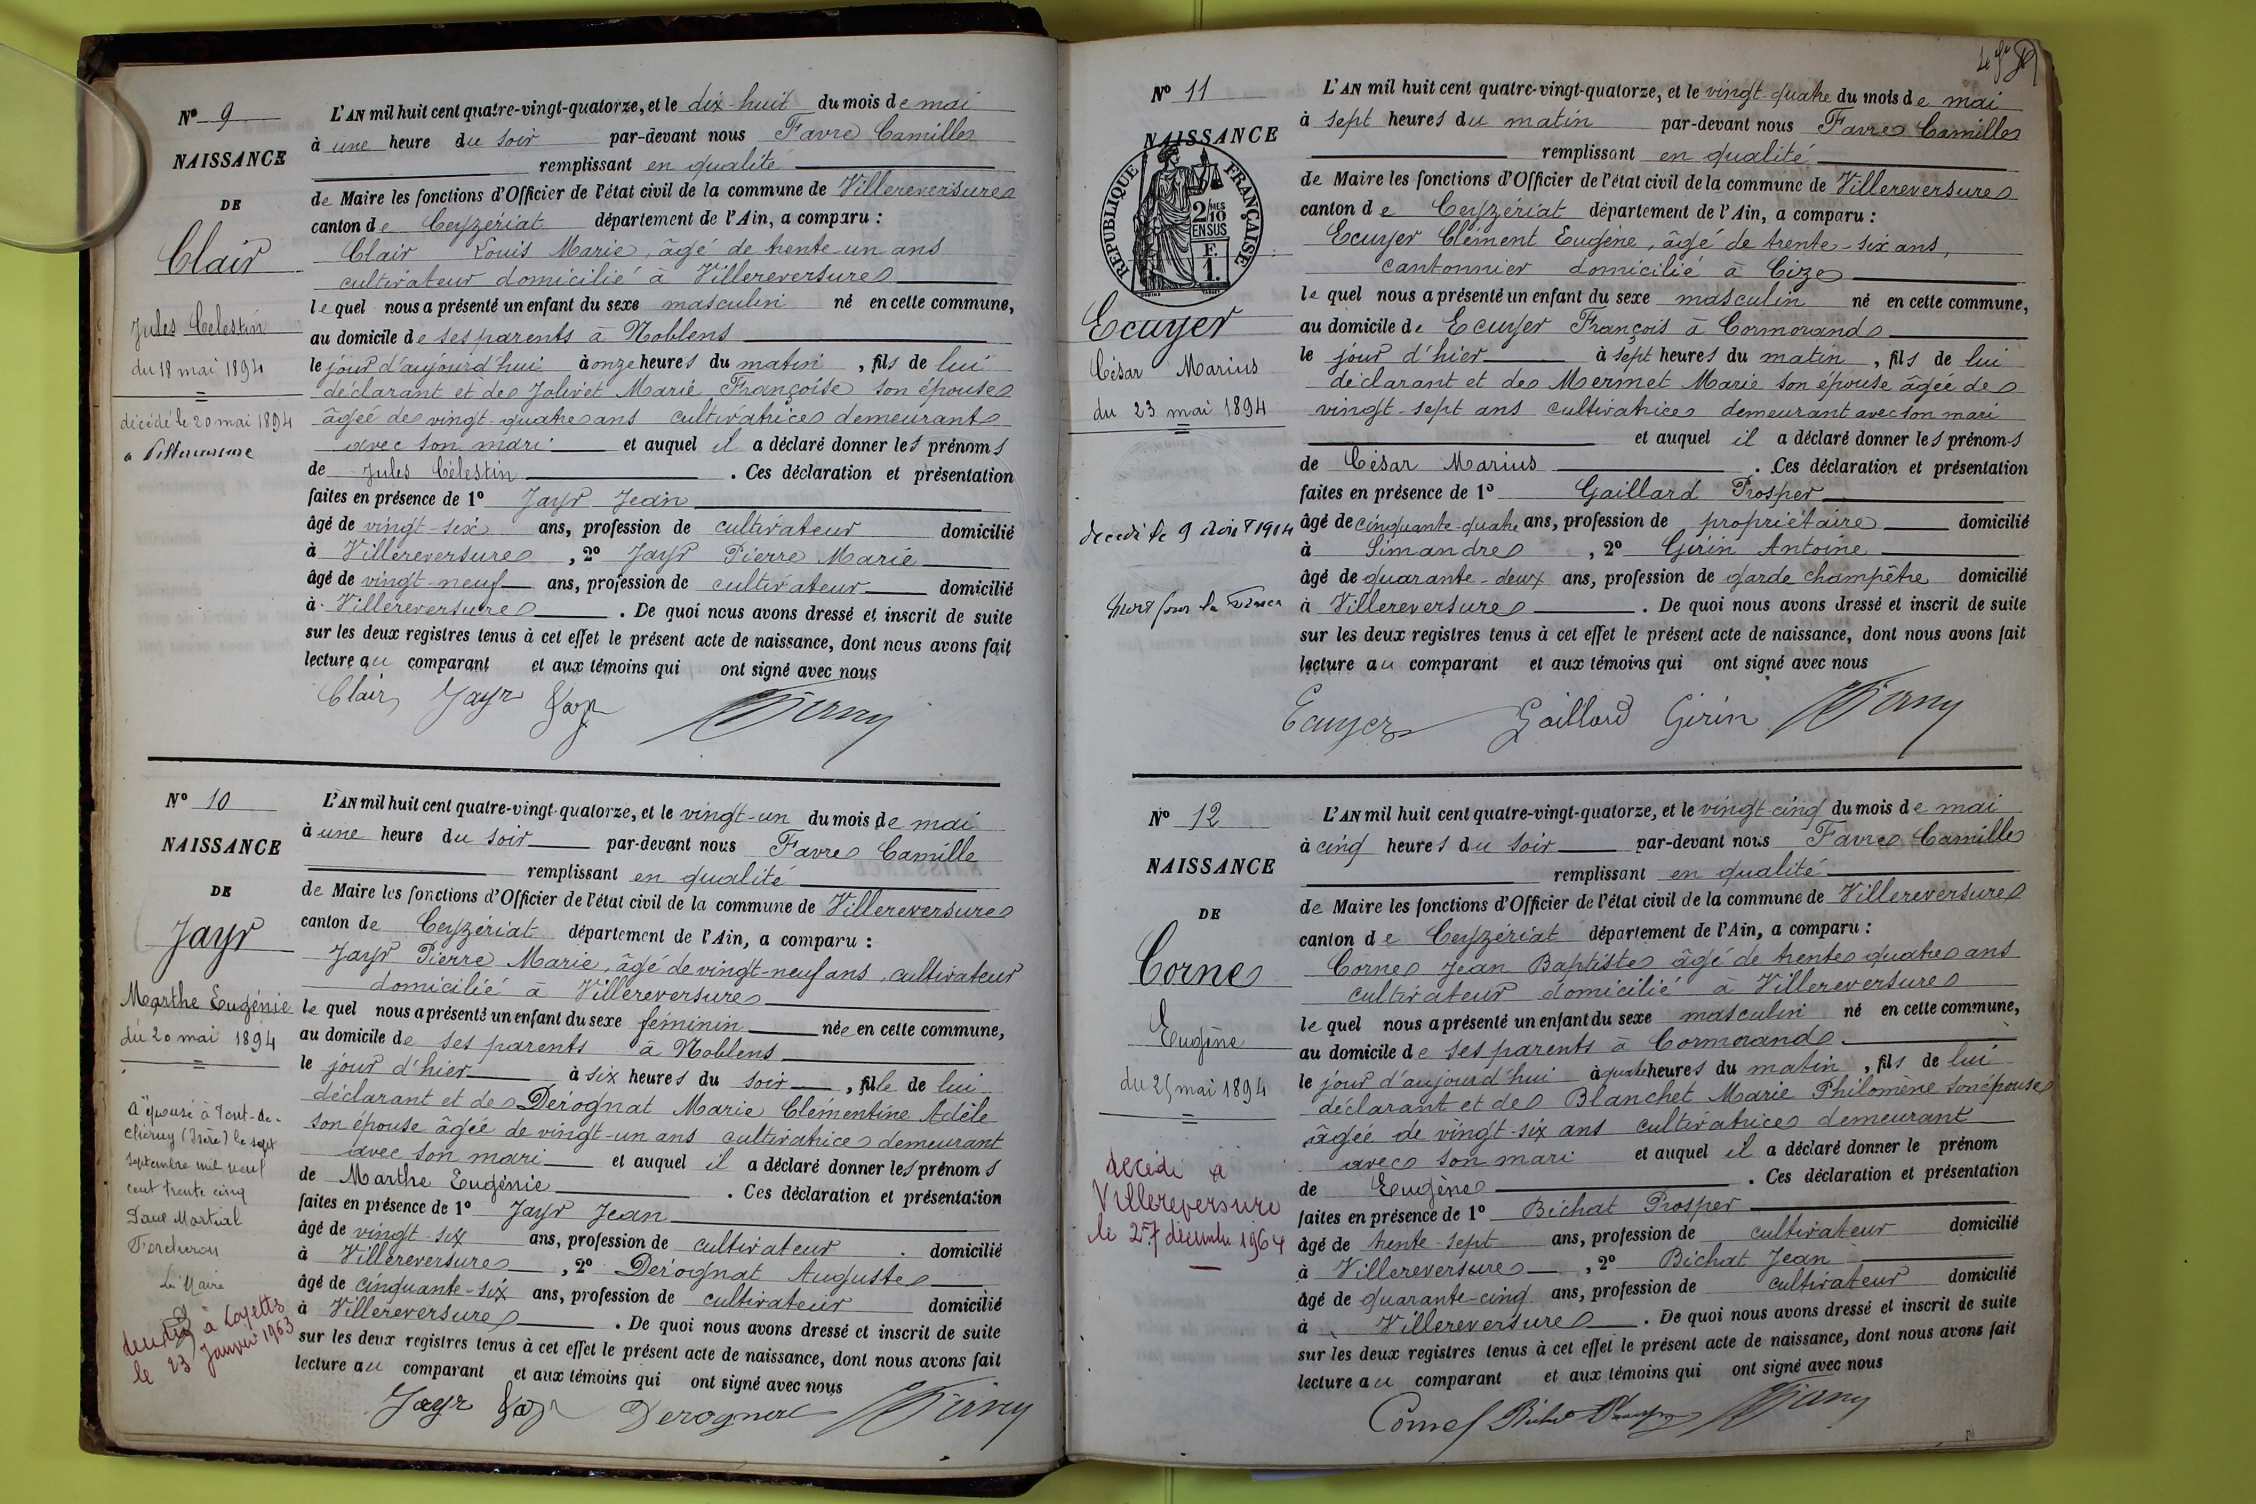 Nº 9
NAISSANCE
DE
Clair
Jules Celestin
du 18 mai 1894
décédé le 20 mai 1894
a Villereversure
L'AN mil huit cent quatre-vingt-quatorze, et le dix-huit du mois de mai
à une heure du soir par-devant nous Favre Camille
remplissant en qualité
de Maire les fonctions d'Officier de l'état civil de la commune de Villereversure
canton de Ceyzériat département de l'Ain, a comparu :
Clair Louis Marie, âgé de trente-un ans
cultivateur domicilié à Villereversure
lequel nous a présenté un enfant du sexe masculin né en cette commune,
au domicile de ses parents à Noblens
le jour d'aujourd'hui à onze heures du matin, fils de lui
déclarant et de Jolivet Marie Françoise son épouse
âgée de vingt-quatre ans cultivatrice demeurant
avec son mari et auquel il a déclaré donner les prénoms
de Jules Célestin. Ces déclaration et présentation
faites en présence de 1º Jayr Jean
âgé de vingt-six ans, profession de cultivateur domicilié
à Villereversure, 2º Jayr Pierre Marie
âgé de vingt-neuf ans, profession de cultivateur domicilié
à Villereversure. De quoi nous avons dressé et inscrit de suite
sur les deux registres tenus à cet effet le présent acte de naissance, dont nous avons fait
lecture au comparant et aux témoins qui ont signé avec nous
Clair Jayr Jayr
Nº 10
NAISSANCE
DE
Jayr
Marthe Eugénie
du 20 mai 1894
A épousé à Pont-de-
Chéruy (Isère) le sept
septembre mil neuf
cent trente cinq
Paul Martial
Le Maire
le 23 Janvier 1963
L'AN mil huit cent quatre-vingt-quatorze, et le vingt-un du mois de mai
à une heure du soir par-devant nous Favre Camille
remplissant en qualité
de Maire les fonctions d'Officier de l'état civil de la commune de Villereversure
canton de Ceyzériat département de l'Ain, a comparu :
Jayr Pierre Marie, âgé de vingt-neuf ans, cultivateur
domicilié à Villereversure
lequel nous a présenté un enfant du sexe féminin née en cette commune,
au domicile de ses parents à Noblens
le jour d'hier à six heures du soir, fille de lui
déclarant et de Derognat Marie Clémentine Adèle
son épouse âgée de vingt-un ans cultivatrice demeurant
avec son mari et auquel il a déclaré donner les prénoms
de Marthe Eugénie. Ces déclaration et présentation
faites en présence de 1º Jayr Jean
âgé de vingt-six ans, profession de cultivateur domicilié
à Villereversure, 2º Derognat Auguste
âgé de cinquante-six ans, profession de cultivateur domicilié
à Villereversure. De quoi nous avons dressé et inscrit de suite
sur les deux registres tenus à cet effet le présent acte de naissance, dont nous avons fait
lecture au comparant et aux témoins qui ont signé avec nous
Jayr Jayr Derognat
Nº 11
NAISSANCE
RÉPUBLIQUE FRANÇAISE
2/MES
10
EN SUS
F.
1.
Ecuyer
César Marius
du 23 mai 1894
décédé le 9 Août 1914
mort pour la France
L'AN mil huit cent quatre-vingt-quatorze, et le vingt-quatre du mois de mai
à sept heures du matin par-devant nous Favre Camille
remplissant en qualité
de Maire les fonctions d'Officier de l'état civil de la commune de Villereversure
canton de Ceyzériat département de l'Ain, a comparu :
Ecuyer Clément Eugène, âgé de trente-six ans,
cantonnier domicilié à Cize
lequel nous a présenté un enfant du sexe masculin né en cette commune,
au domicile de Ecuyer François à Cormorand
le jour d'hier à sept heures du matin, fils de lui
déclarant et de Mermet Marie son épouse âgée de
vingt-sept ans cultivatrice demeurant avec son mari
et auquel il a déclaré donner les prénoms
de César Marius. Ces déclaration et présentation
faites en présence de 1º Gaillard Prosper
âgé de cinquante-quatre ans, profession de propriétaire domicilié
à Simandre, 2º Girin Antoine
âgé de quarante-deux ans, profession de garde champêtre domicilié
à Villereversure. De quoi nous avons dressé et inscrit de suite
sur les deux registres tenus à cet effet le présent acte de naissance, dont nous avons fait
lecture au comparant et aux témoins qui ont signé avec nous
Ecuyer Gaillard Girin
Nº 12
NAISSANCE
DE
Corne
Eugène
du 25 mai 1894
décédé à
Villereversure
le 27 décembre 1964
L'AN mil huit cent quatre-vingt-quatorze, et le vingt-cinq du mois de mai
à cinq heures du soir par-devant nous Favre Camille
remplissant en qualité
de Maire les fonctions d'Officier de l'état civil de la commune de Villereversure
canton de Ceyzériat département de l'Ain, a comparu :
Corne Jean Baptiste âgé de trente quatre ans
cultivateur domicilié à Villereversure
lequel nous a présenté un enfant du sexe masculin né en cette commune,
au domicile de ses parents à Cormorand
le jour d'aujourd'hui à quatre heures du matin, fils de lui
déclarant et de Blanchet Marie Philomène son épouse
âgée de vingt-six ans cultivatrice demeurant
avec son mari et auquel il a déclaré donner le prénom
de Eugène. Ces déclaration et présentation
faites en présence de 1º Bichat Prosper
âgé de trente-sept ans, profession de cultivateur domicilié
à Villereversure, 2º Bichat Jean
âgé de quarante-cinq ans, profession de cultivateur domicilié
à Villereversure. De quoi nous avons dressé et inscrit de suite
sur les deux registres tenus à cet effet le présent acte de naissance, dont nous avons fait
lecture au comparant et aux témoins qui ont signé avec nous